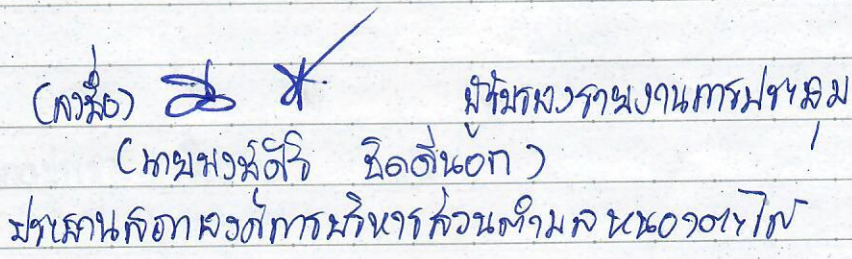 (ลงชื่อ) ผู้รับรองรายงานการประชุม
(นายพงษ์ศิริ ชิดดีนอก)
ประธานสภาองค์การบริหารส่วนตำบลหนองตะไก้